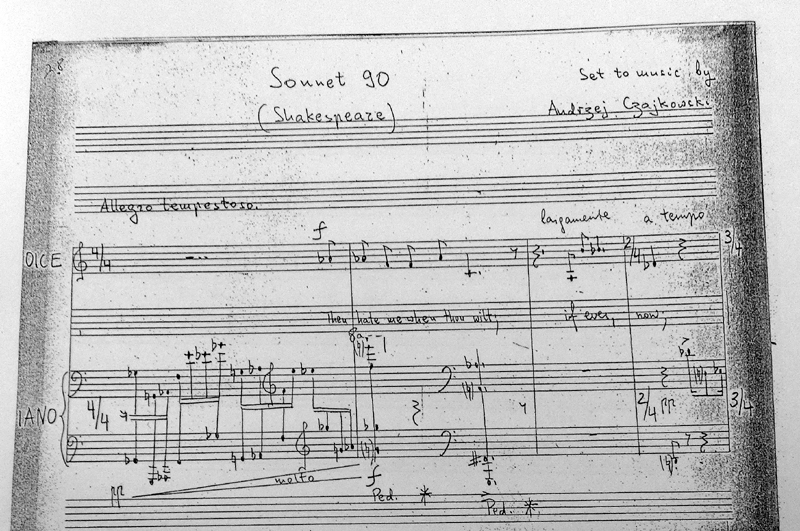 28
Sonnet 90
Set to music by
(Shakespeare)
Andrzej Czajkowski
Allegro tempestoso.
largamente a tempo
f
OICE 4/4 2/4 3/4
Then hate me when thou wilt; if ever, now;
8a
IANO 4/4 2/4 pp 3/4
pp molto f
Ped. * Ped. *